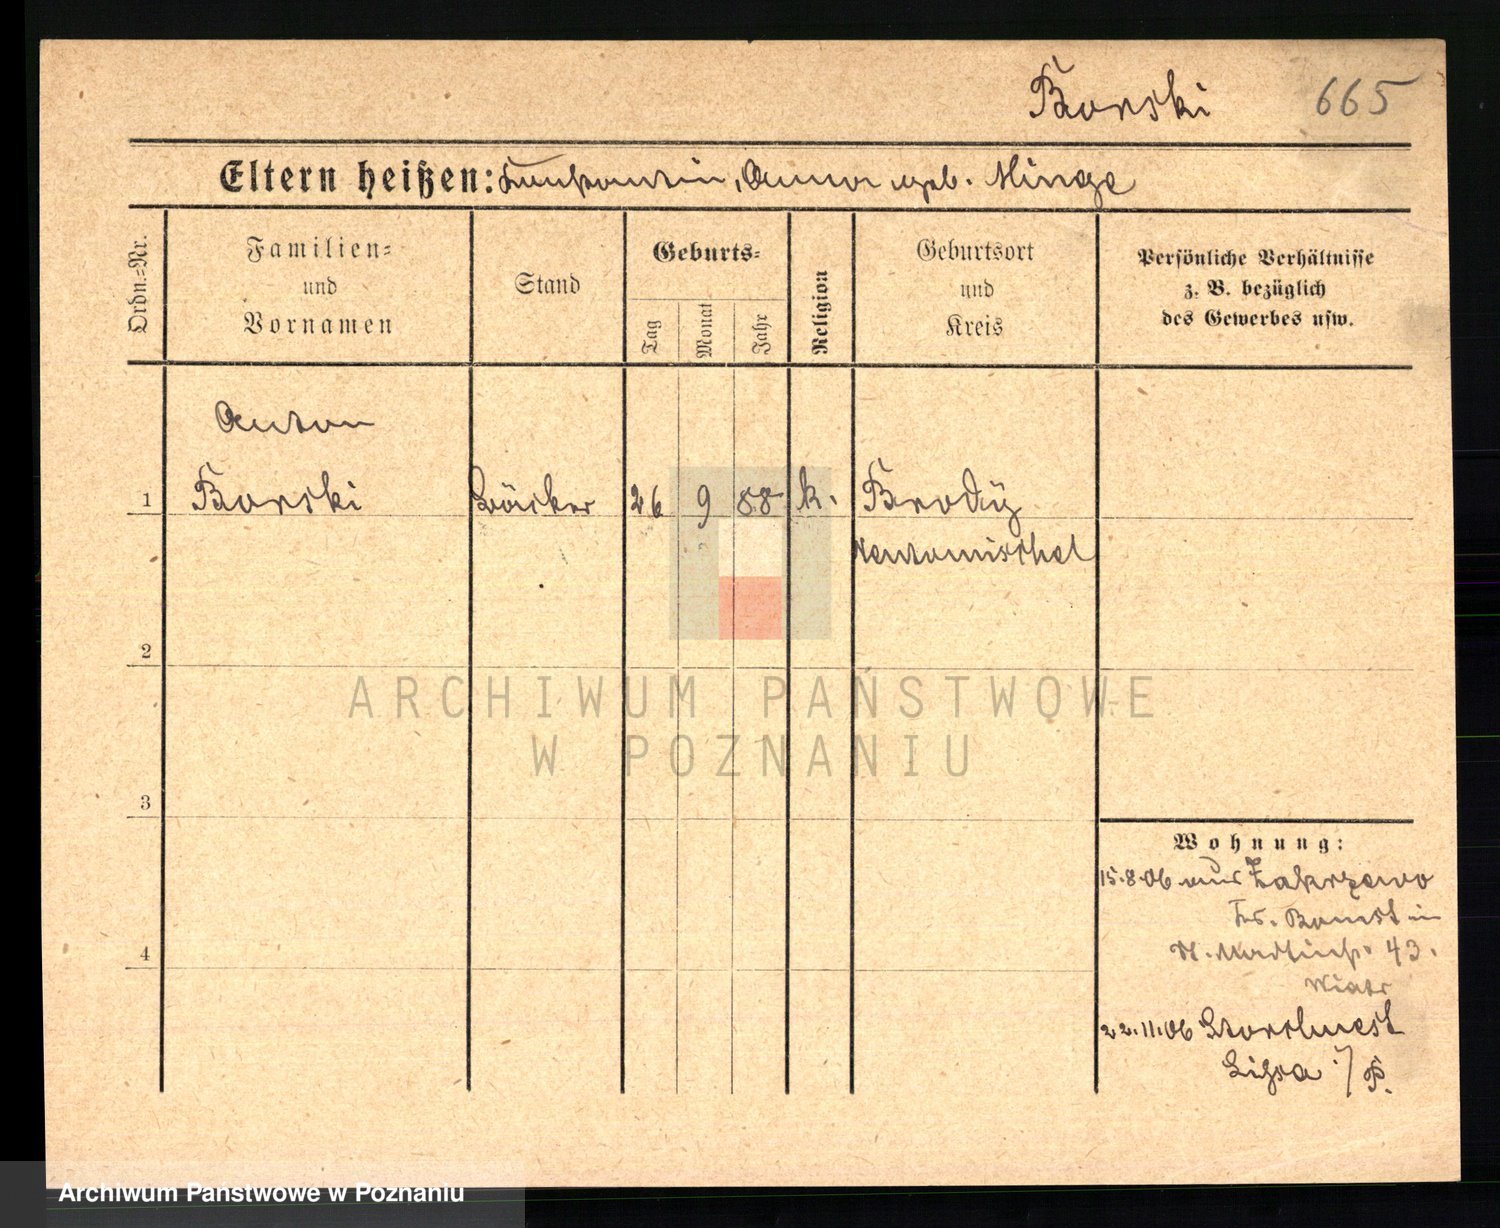 Borski 665
Eltern heißen: Konstantin, Anna geb. Minge
Ordn.=Nr.
Familien=
und
Vornamen
Stand
Geburts=
Tag
Monat
Jahr
Religion
Geburtsort
und
Kreis
Persönliche Verhältnisse
z. B. bezüglich
des Gewerbes usw.
Anton
1 Borski Bäcker 26 9 88 k. Brody
Neutomischel
2
3
4
Wohnung:
15.8.06 aus Zakrzewo
Krs. Bomst in
43.
Wiatr
22.11.06 Storchnest
Lissa i/P.
ARCHIWUM PAŃSTWOWE
W POZNANIU
Archiwum Państwowe w Poznaniu